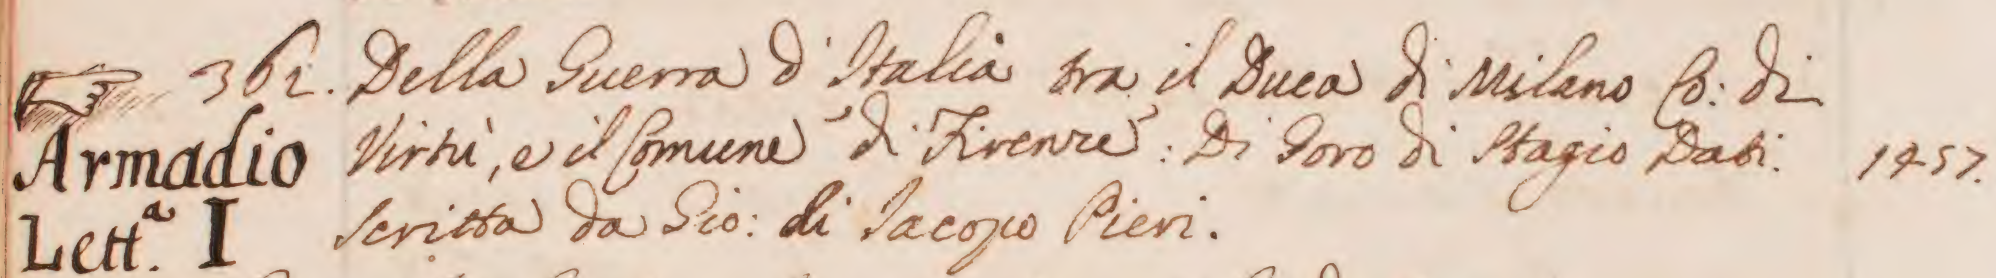 362. Della Guerra d'Italia tra il Duca di Milano Co: di
Armadio Virtù, e il Comune di Firenze: Di Goro di Stagio Dati. 1457.
Lett.ª I scritta da Gio: di Iacopo Pieri.